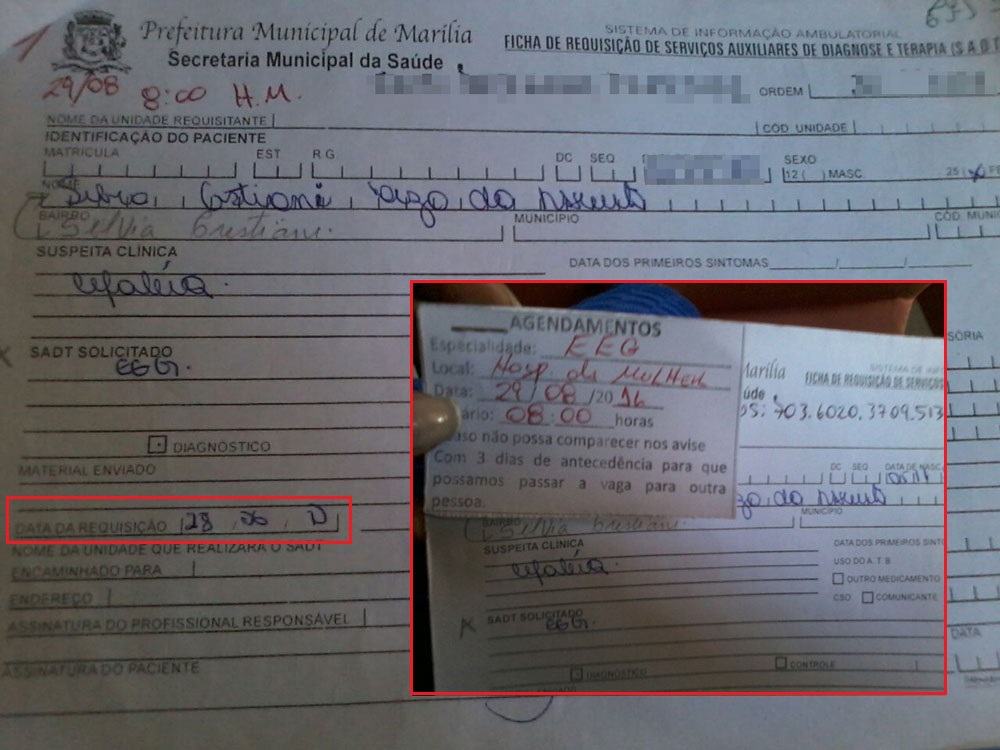 Prefeitura Municipal de Marília
Secretaria Municipal da Saúde
SISTEMA DE INFORMAÇÃO AMBULATORIAL
FICHA DE REQUISIÇÃO DE SERVIÇOS AUXILIARES DE DIAGNOSE E TERAPIA (S.A.D.T
29/08 8:00 H.M.
ORDEM
NOME DA UNIDADE REQUISITANTE
CÓD. UNIDADE
IDENTIFICAÇÃO DO PACIENTE
MATRÍCULA EST R G DC SEQ SEXO
12 ( ) MASC. 25
NOME
BAIRRO Silvia Cristiani. MUNICÍPIO CÓD. MUNI
SUSPEITA CLÍNICA
DATA DOS PRIMEIROS SINTOMAS
Cefaléia.
SADT SOLICITADO
EEG.
DIAGNÓSTICO
MATERIAL ENVIADO
DATA DA REQUISIÇÃO 28
NOME DA UNIDADE QUE REALIZARÁ O SADT
ENCAMINHADO PARA
ENDEREÇO
ASSINATURA DO PROFISSIONAL RESPONSÁVEL
ASSINATURA DO PACIENTE
AGENDAMENTOS
Especialidade: EEG
Local: Hosp. da Mulher
Data: 29/08/2016
ário: 08:00 horas
aso não possa comparecer nos avise
Com 3 dias de antecedência para que
possamos passar a vaga para outra
pessoa.
Marília
úde
FICHA DE REQUISIÇÃO DE SERVIÇOS
703.6020.3709.513
DC SEQ DATA DE NASC
MUNICÍPIO
SUSPEITA CLÍNICA
Cefaléia.
DATA DOS PRIMEIROS SINT
USO DO A. T. B
OUTRO MEDICAMENTO
CSO COMUNICANTE
SADT SOLICITADO
EEG.
DIAGNÓSTICO
CONTROLE
SÓRIA
DATA